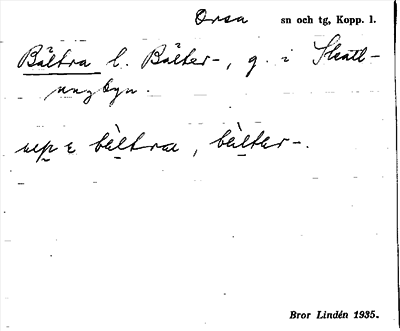 Orsa sn och tg, Kopp. l.
Båltra l. Bålter-, g. i Skatt-
ungbyn.
uɛp bàltra, bàltɛr-.
Bror Lindén 1935.